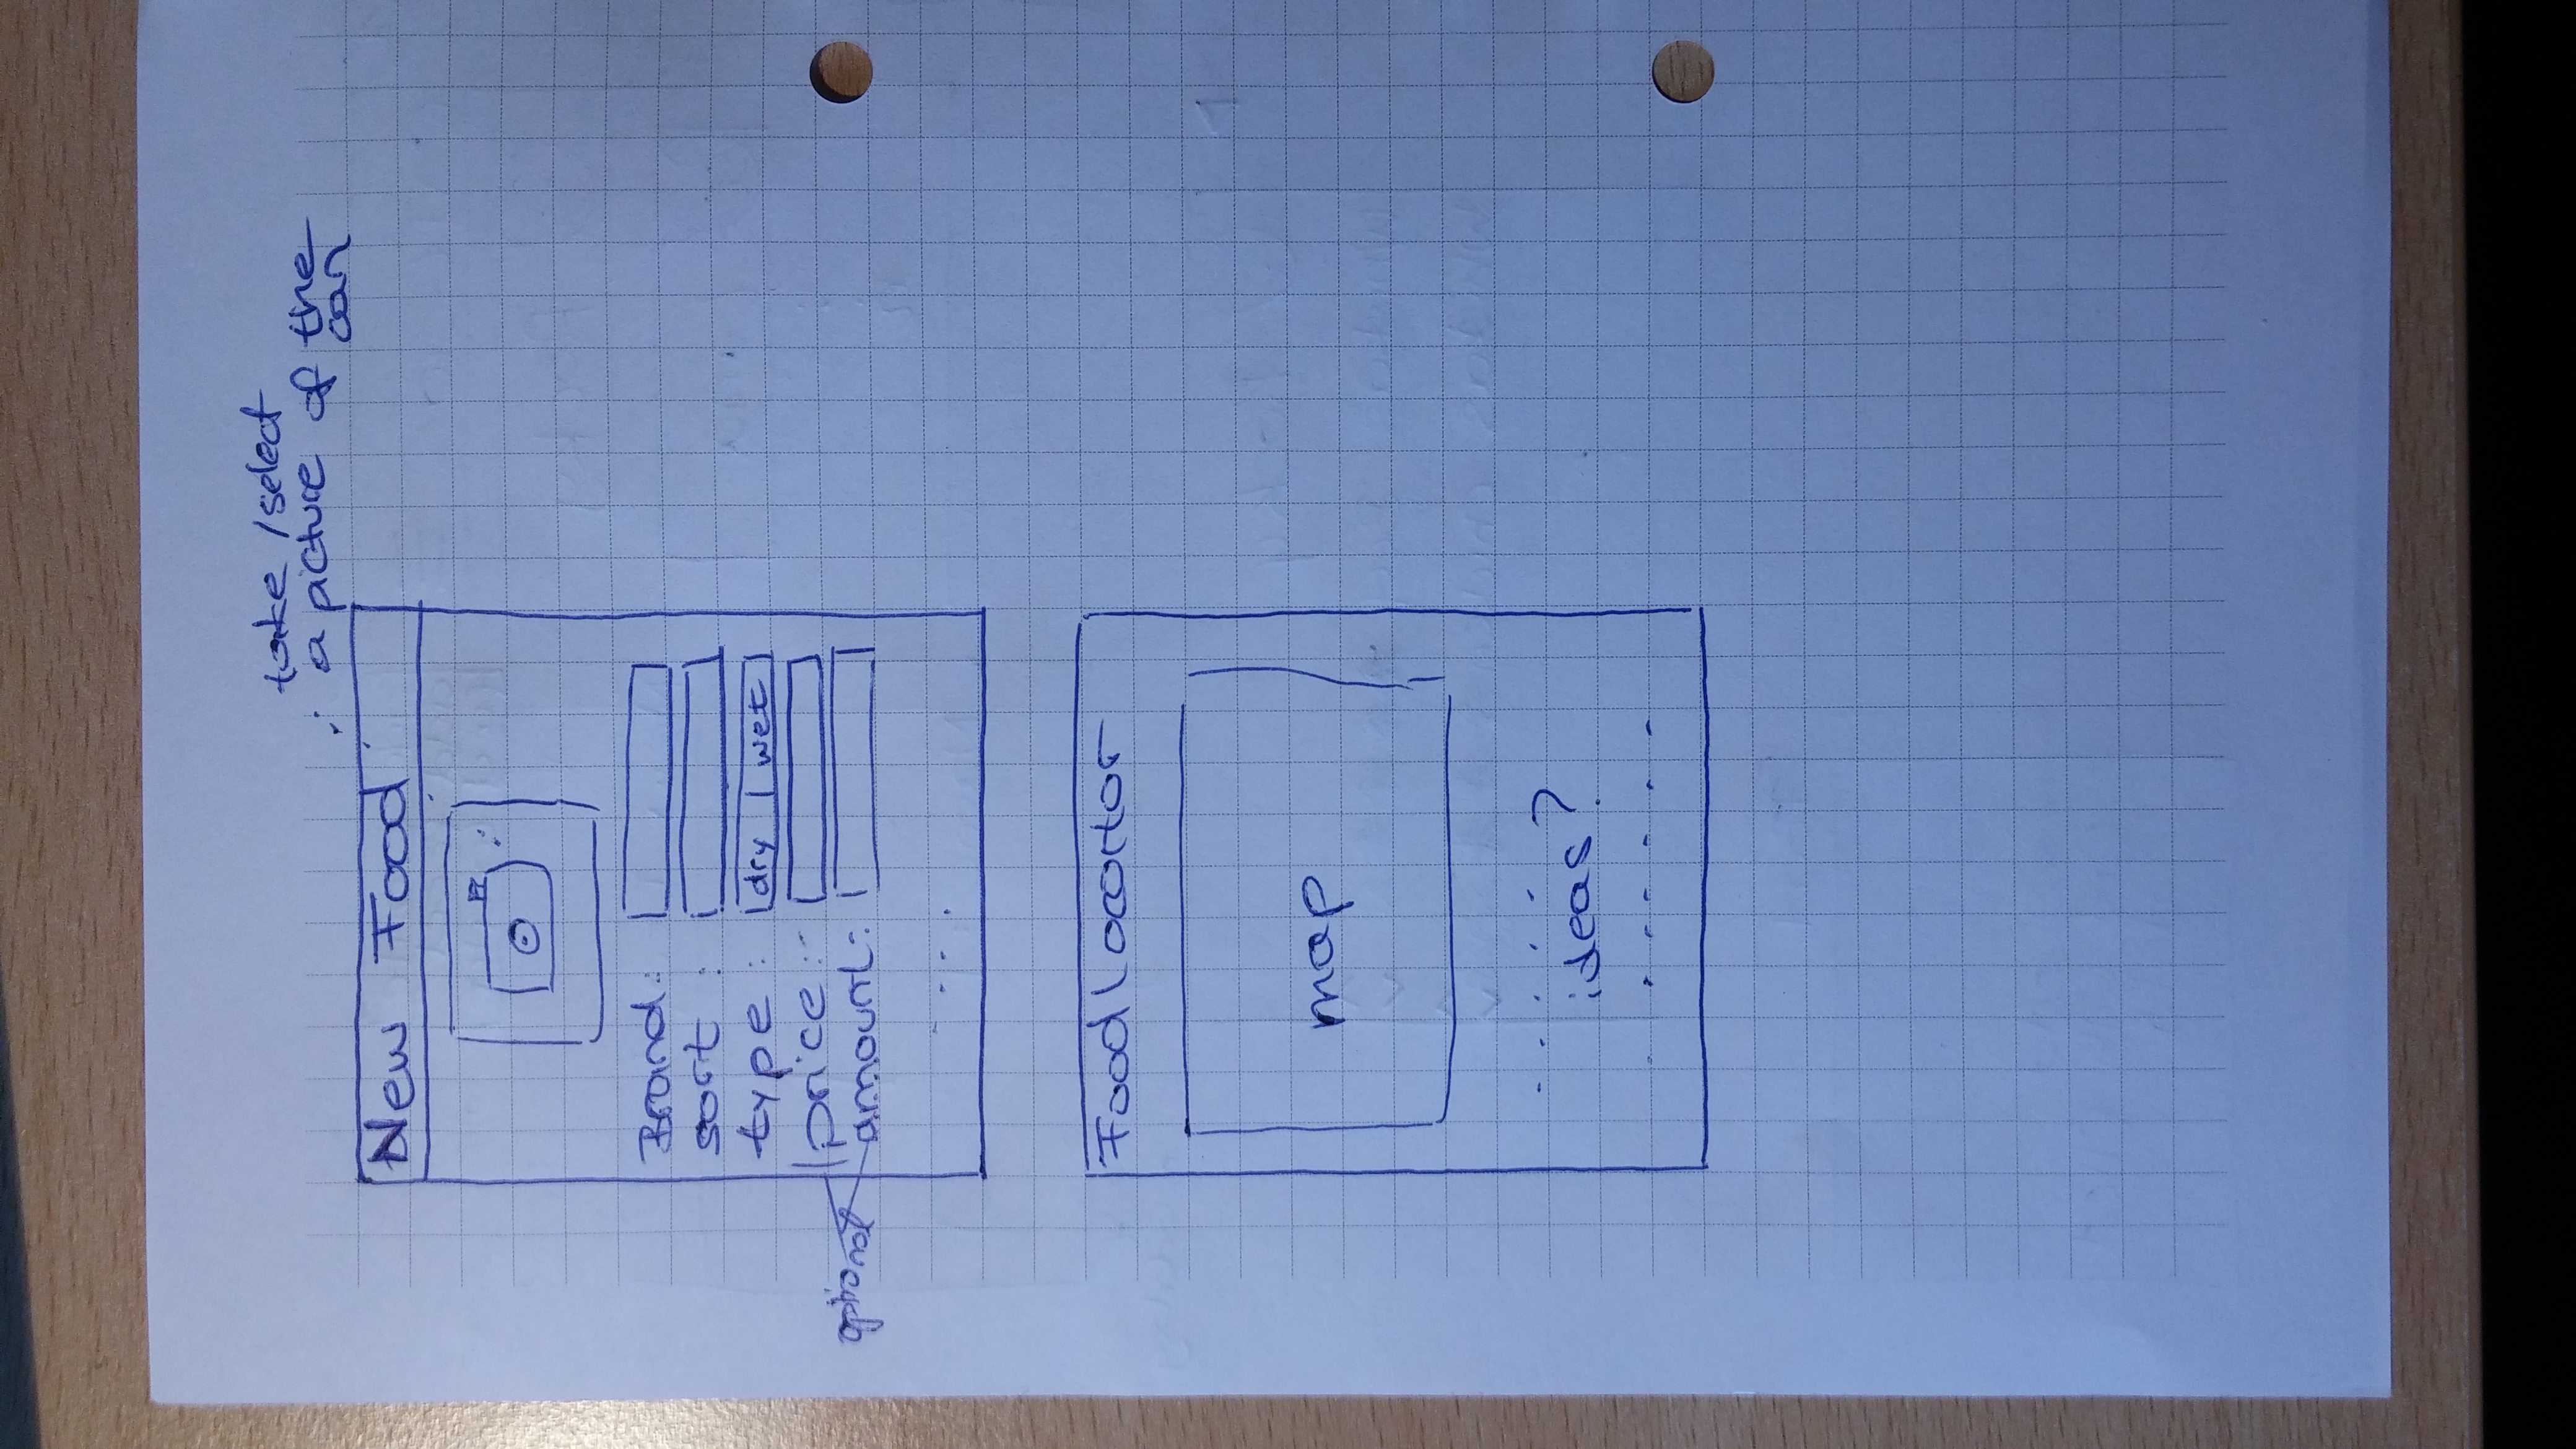 take / select
a picture of the
can
New Food
Brand:
sort :
type : dry | wet
price:
optional
amount:
Food locator
map
ideas?